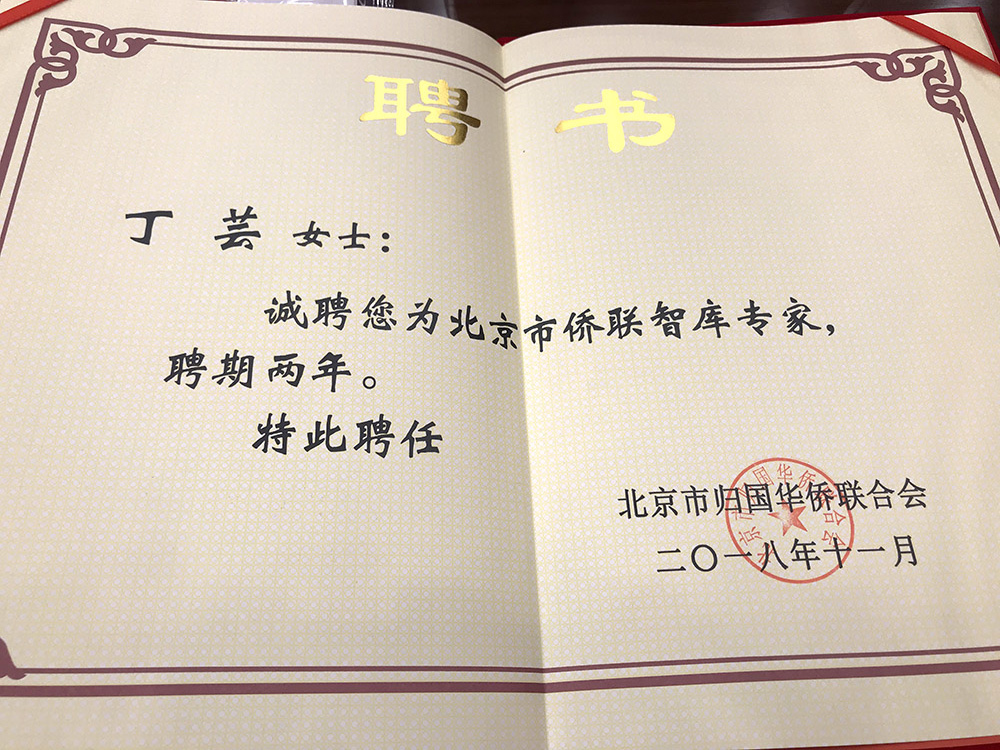 聘书
丁芸 女士：
诚聘您为北京市侨联智库专家，
聘期两年。
特此聘任
北京市归国华侨联合会
二〇一八年十一月
北京市归国华侨联合会